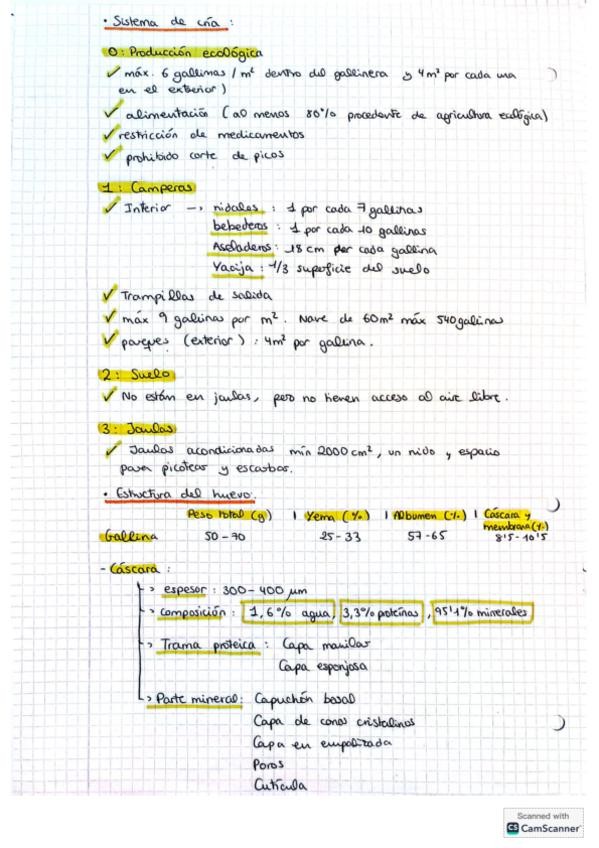 • Sistema de cría :
0: Producción ecológica
✓ máx. 6 gallinas / m² dentro del gallinero y 4 m² por cada una
en el exterior )
✓ alimentación (al menos 80% procedente de agricultura ecológica)
✓ restricción de medicamentos
✓ prohibido corte de picos
1: Camperas
✓ Interior → nidales : 1 por cada 7 gallinas
bebederos : 1 por cada 10 gallinas
Aseladeros : 18 cm por cada gallina
Yacija : 1/3 superficie del suelo
✓ Trampillas de salida
✓ máx 9 gallinas por m². Nave de 60m² máx 540 gallinas
✓ parques (exterior) : 4m² por gallina.
2: Suelo
✓ No están en jaulas, pero no tienen acceso al aire libre.
3: Jaulas
✓ Jaulas acondicionadas mín 2000 cm², un nido y espacio
para picotear y escarbar.
• Estructura del huevo.
Peso total (g) | Yema (%) | Albumen (%) | Cáscara y
membrana (%)
Gallina 50-70 25-33 57-65 8'5-10'5
- Cáscara :
→ espesor : 300-400 µm
→ composición : 1,6% agua, 3,3% proteínas, 95'1% minerales
→ Trama proteica : Capa mamilar
Capa esponjosa
→ Parte mineral: Capuchón basal
Capa de conos cristalinos
Capa en empalizada
Poros
Cutícula
Scanned with
CS CamScanner